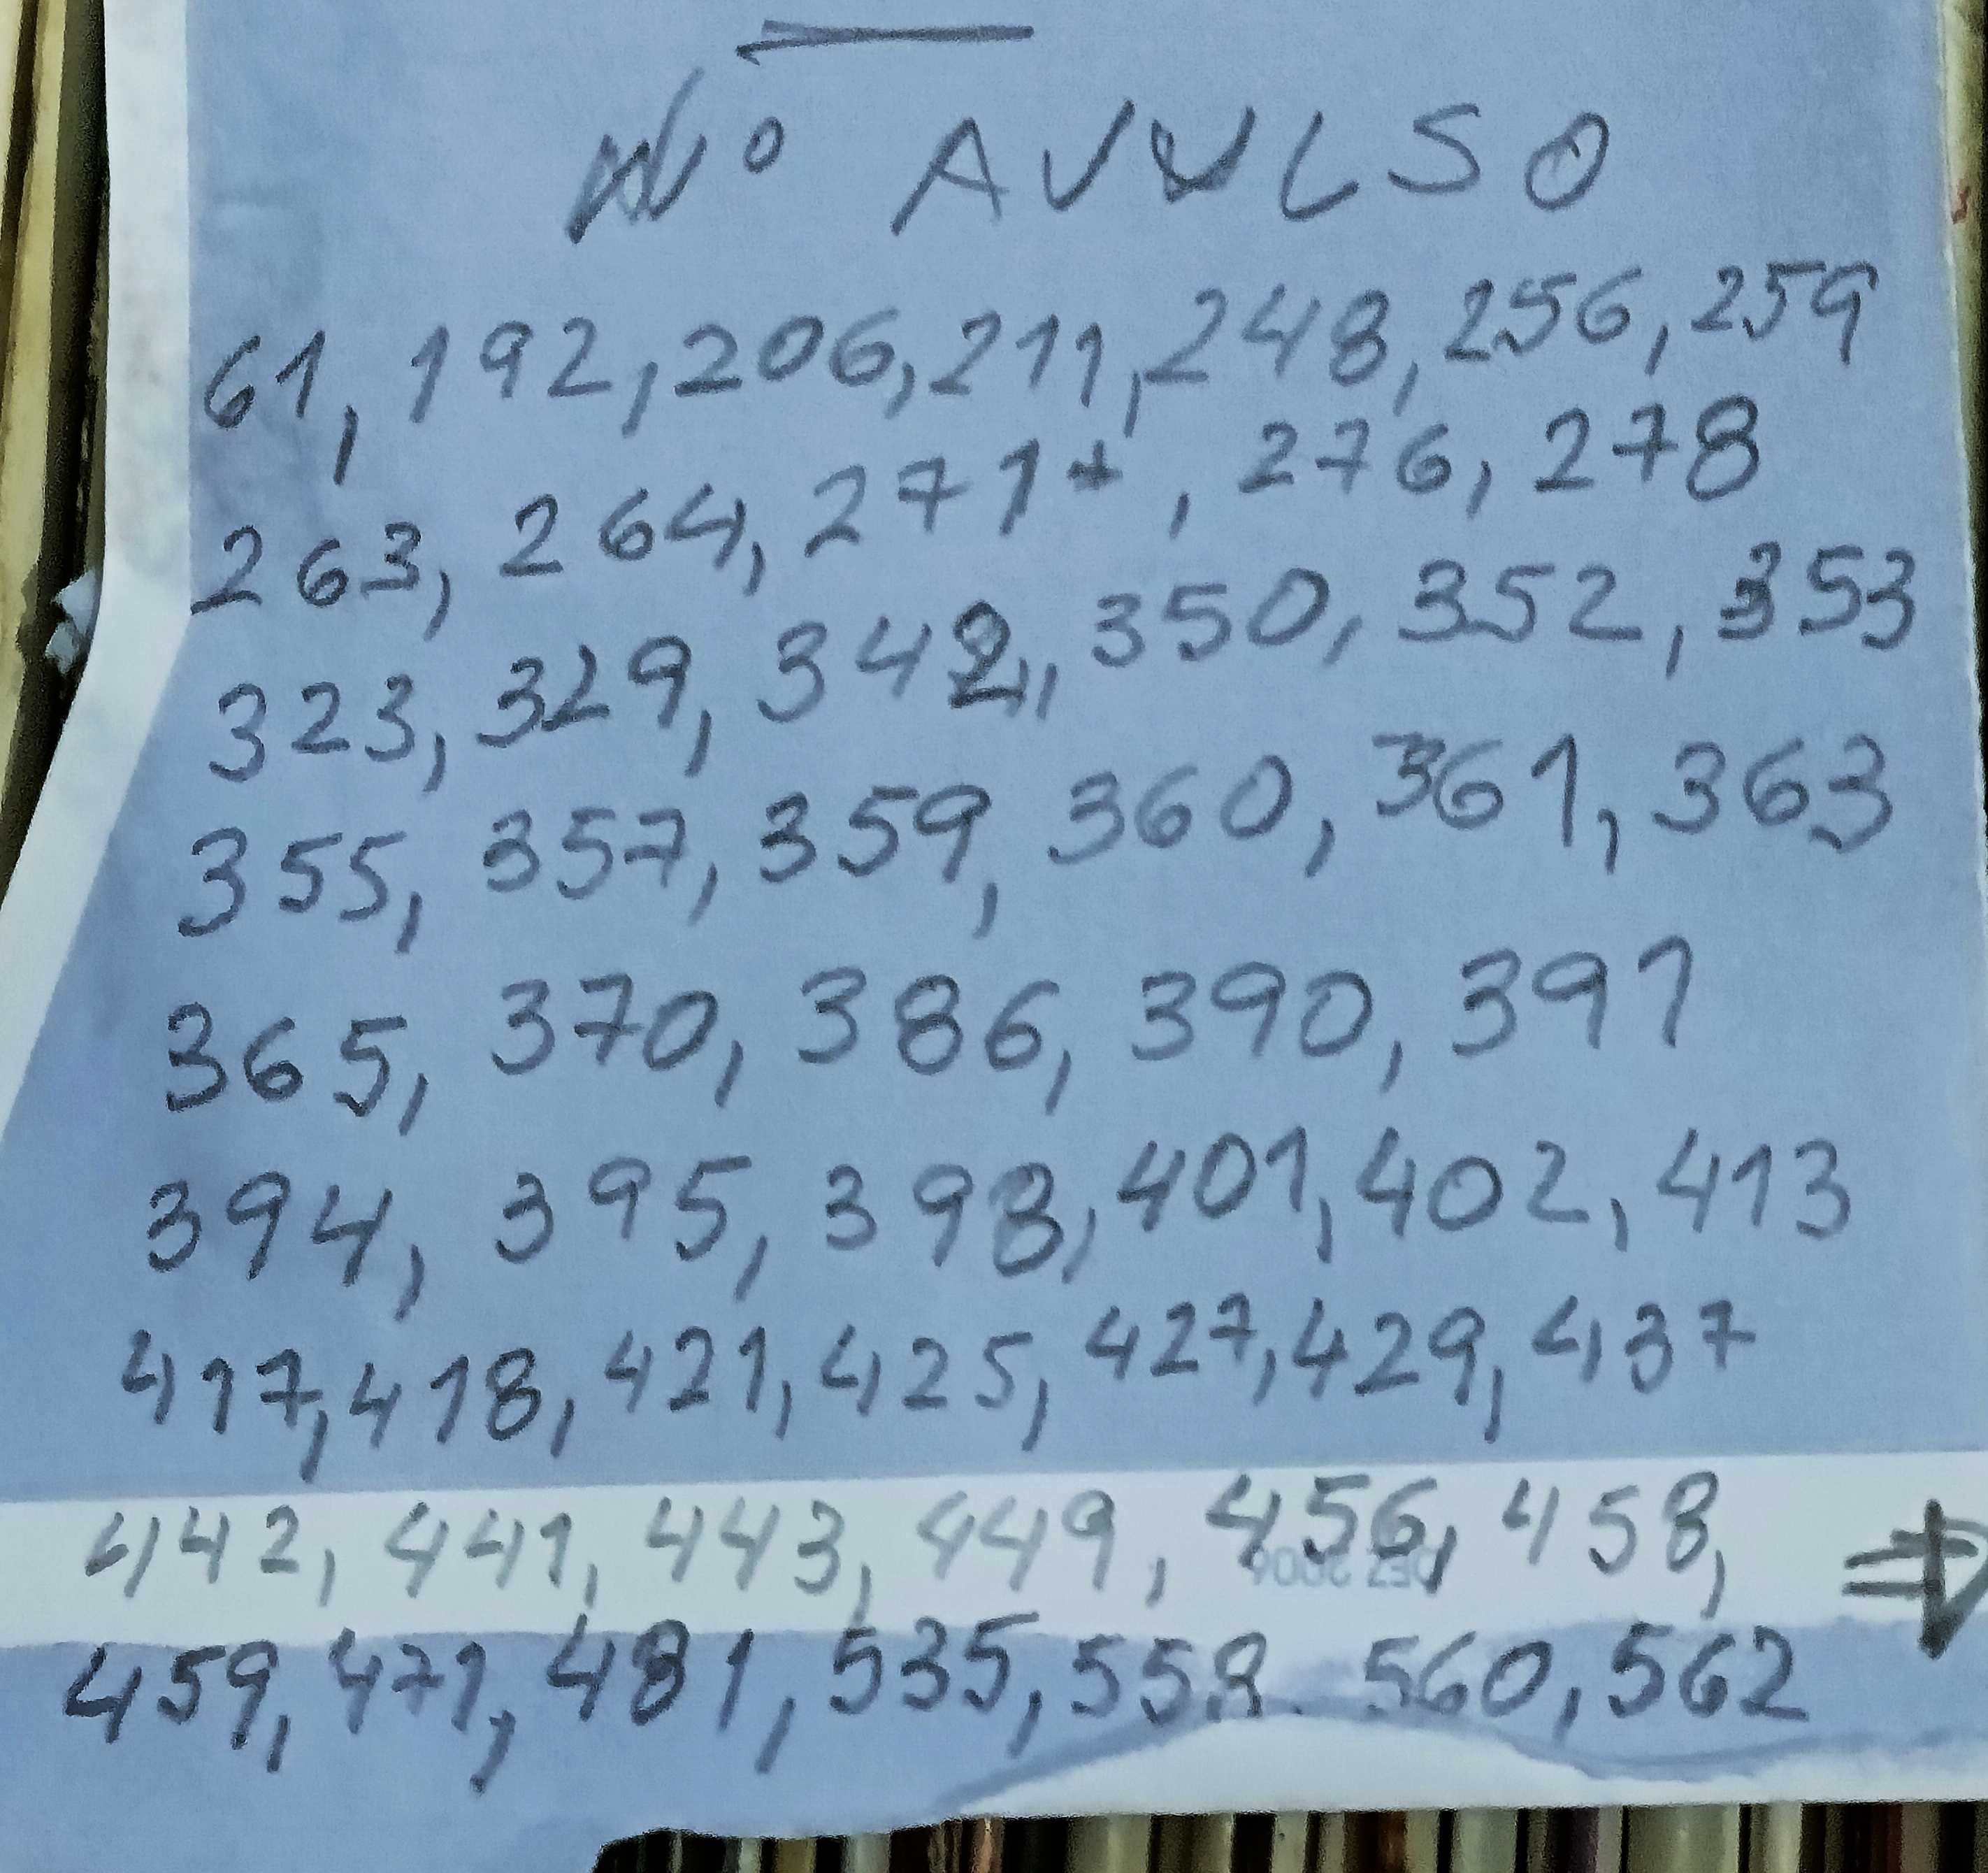 Nº AVULSO
61, 192, 206, 211, 248, 256, 259
263, 264, 271+, 276, 278
323, 329, 342, 350, 352, 353
355, 357, 359, 360, 361, 363
365, 370, 386, 390, 391
394, 395, 398, 401, 402, 413
417, 418, 421, 425, 427, 429, 437
442, 441, 443, 449, 456, 458, ⇒
DEZ 2004
459, 471, 481, 535, 558. 560, 562